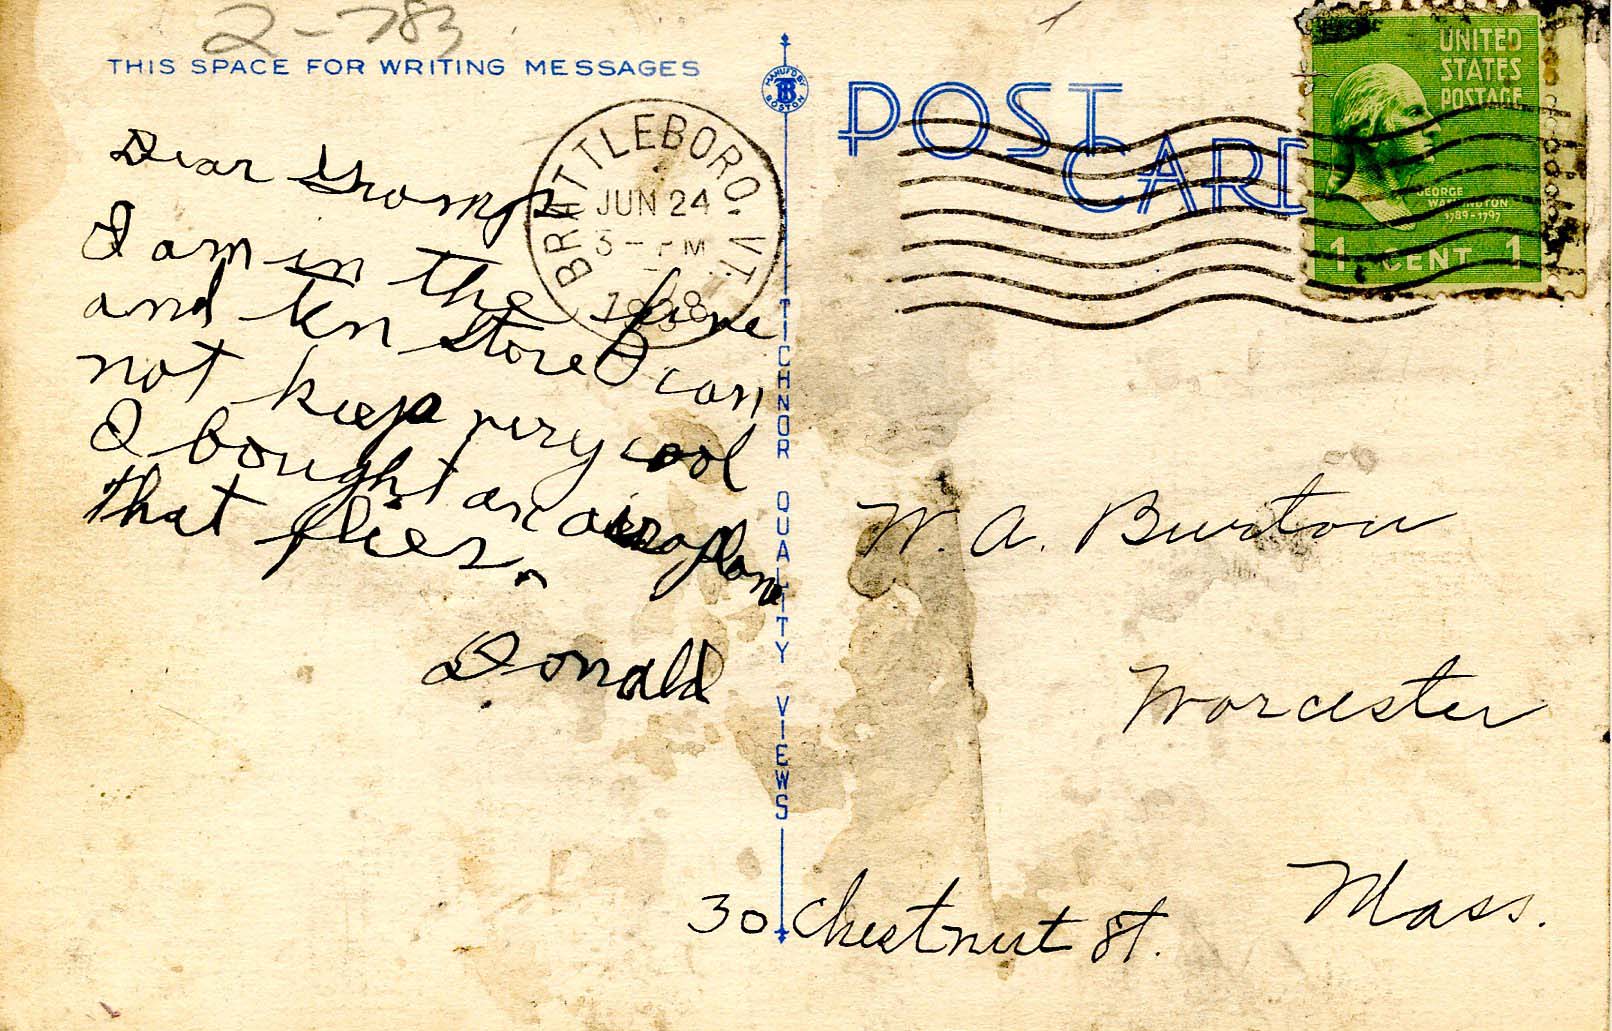 2-783
THIS SPACE FOR WRITING MESSAGES
Dear Gramps
I am in the five
and ten store I can
not keep very cool
I bought an airoplane
that flies.
Donald
BRATTLEBORO. VT.
JUN 24
3 - PM
1938
MANUF'D BY
TB
BOSTON
TICHNOR QUALITY VIEWS
POST
CARD
UNITED
STATES
POSTAGE
GEORGE
WASHINGTON
1789-1797
1 CENT 1
W. A. Burton
Worcester
Mass.
30 Chestnut St.